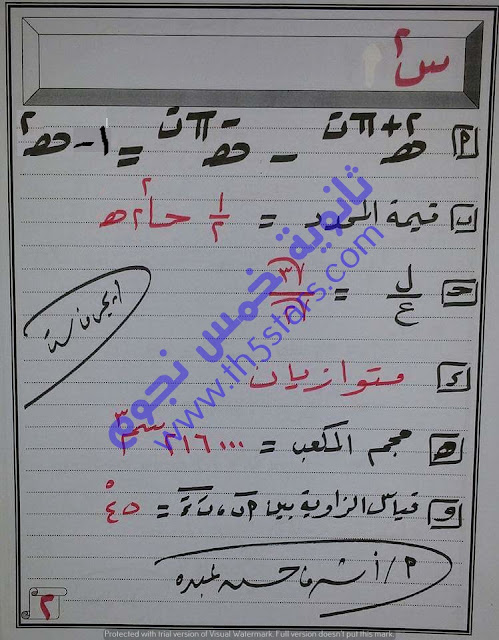 س٢
أ هـ^(٢+πت) − هـ^(−πت) = ١ − هـ^٢
ب قيمة المحدد = ١/٢ حا٢ ٢هـ
حـ ل/ع =
ء متوازيان
هـ حجم المكعب = ٢١٦٠٠٠ سم٣
و قياس الزاوية بين = ٤٥°
٢
ثانوية خمس نجوم
www.th5stars.com
Protected with trial version of Visual Watermark. Full version doesn't put this mark.